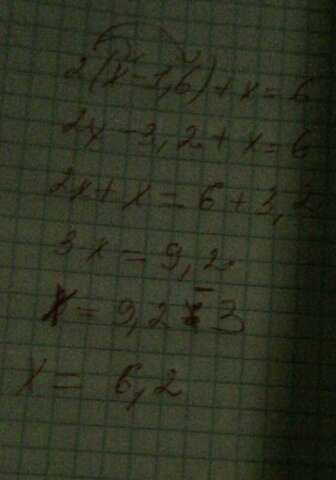 2(x-1,6)+x=6
2x-3,2+x=6
2x+x=6+3,2
3x=9,2
x=9,2-3
x=6,2